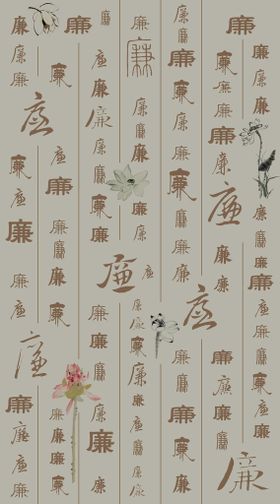 廉廉廉廉廉廉廉廉廉廉廉廉廉廉廉
廉廉廉廉廉廉廉廉廉廉廉廉廉廉
廉廉廉廉廉廉廉廉廉廉廉廉廉廉廉廉廉
廉廉廉廉廉廉廉廉廉廉廉廉廉廉廉廉廉廉廉
廉廉廉廉廉廉廉廉廉廉廉廉廉廉廉廉廉廉廉廉
廉廉廉廉廉廉廉廉廉廉廉廉廉廉廉廉廉
廉廉廉廉廉廉廉廉廉廉廉廉廉